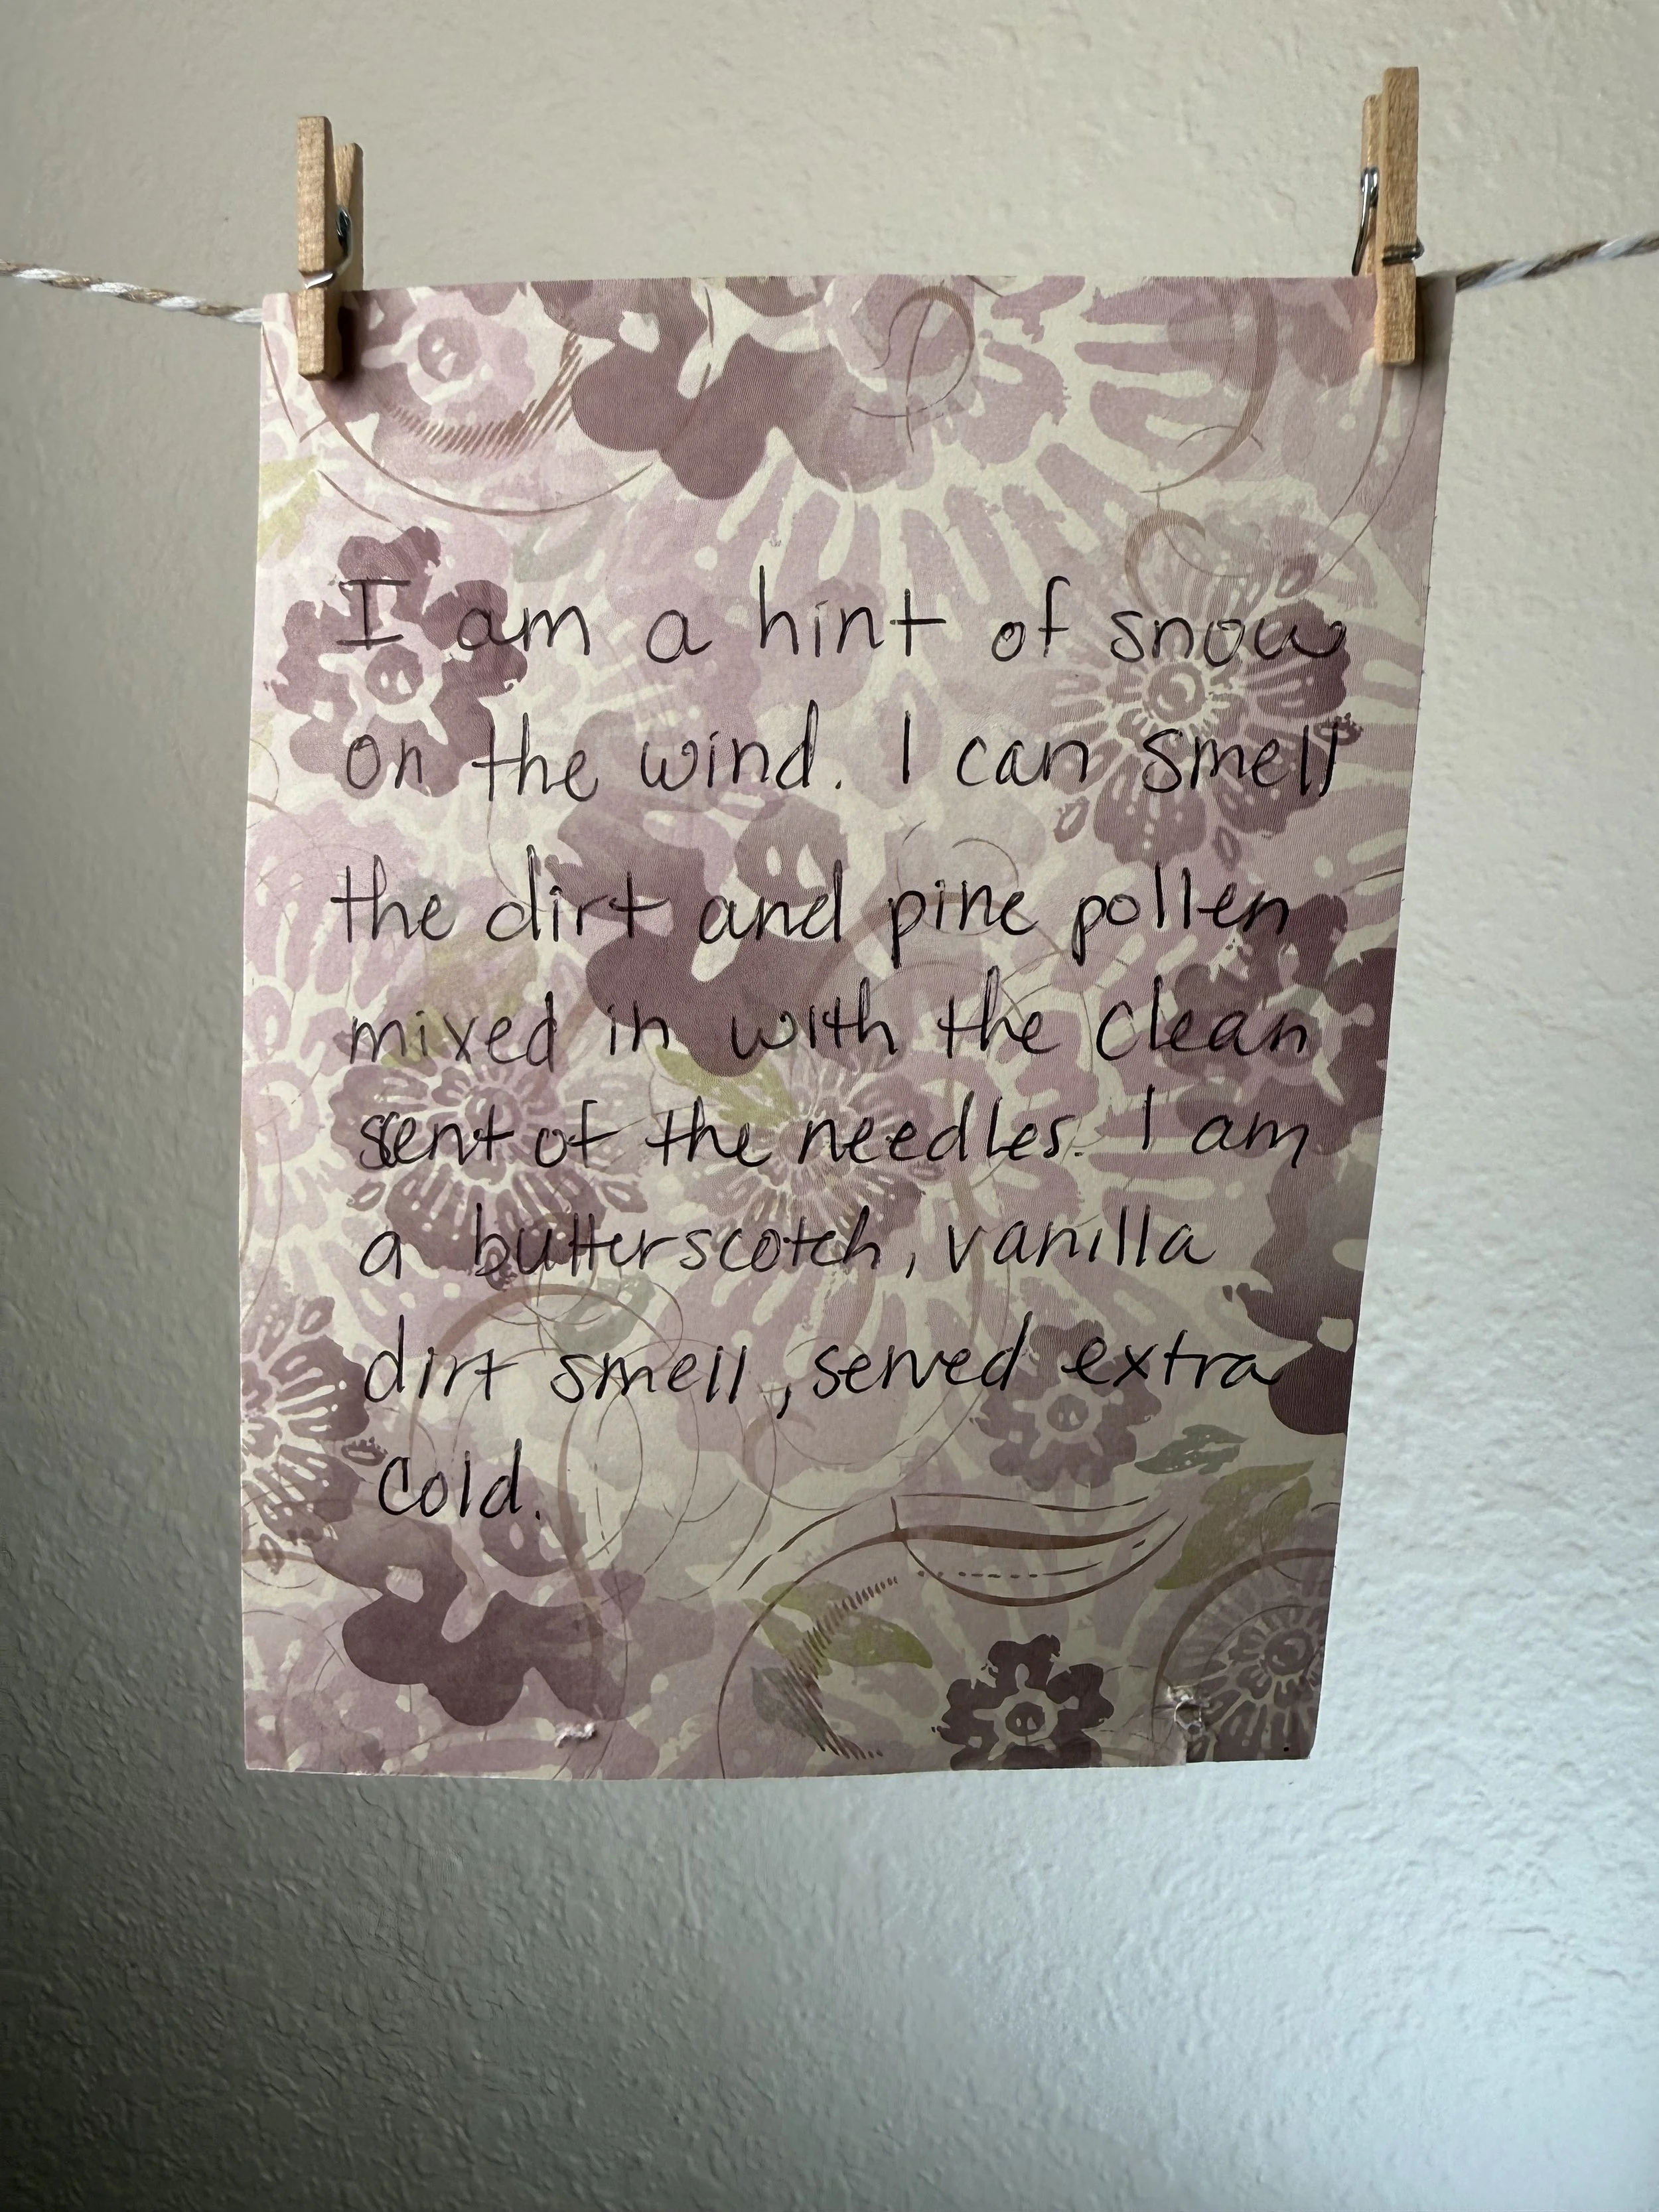 I am a hint of snow
on the wind. I can smell
the dirt and pine pollen
mixed in with the clean
scent of the needles. I am
a butterscotch, vanilla
dirt smell, served extra
cold.